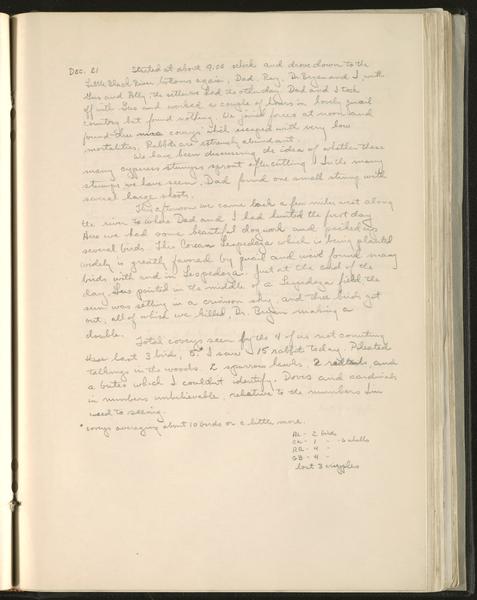 Dec. 21 Started at about 9.00 oclock and drove down to the
Little Black River bottoms again, Dad, Ray, Dr Bryan and I, with
Gus and Polly, the setters we had the other day. Dad and I took
off with Gus and worked a couple of hours in lovely quail
country but found nothing. We joined forces at noon and
found three nice coveys which escaped with very low
mortalities. Rabbits are extremely abundant.
We have been discussing the idea of whether these
many cypress stumps sprout after cutting. In the many
stumps we have seen, Dad found one small stump with
several large shoots.
This afternoon we came back a few miles west along
the river to where Dad and I had hunted the first day
Here we had some beautiful dog work and picked up
several birds. The Corean Lespedeza which is being planted
widely is greatly favored by quail and we've found many
birds with and in Lespedeza. Just at the end of the
day Gus pointed in the middle of a Lespedeza field the
sun was setting in a crimson sky, and three birds got
out, all of which we killed, Dr. Bryan making a
double.
Total coveys seen by the 4 of us not counting
these last 3 birds, 5.* I saw 15 rabbits today. Pileated
talkings in the woods. 2 sparrow hawks, 2 redtails, and
a buteo which I couldn't identify. Doves and cardinals
in numbers unbelievable, relative to the numbers I'm
used to seeing.
* coveys averaging about 10 birds or a little more.
AL - 2 birds
- 1 - - 6 shells
- 4 -
GB - 4 -
lost 3 cripples